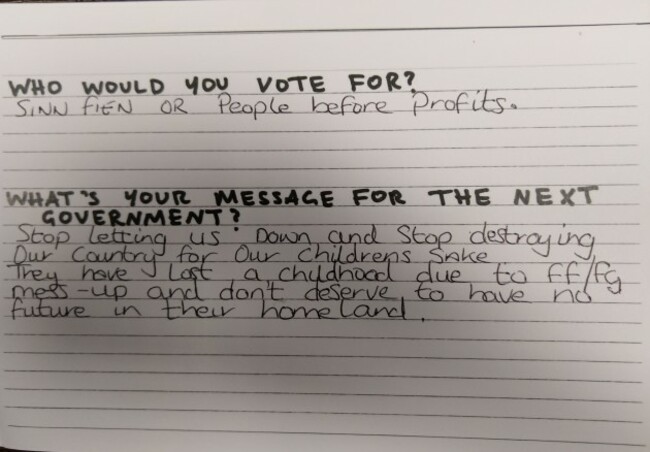 WHO WOULD YOU VOTE FOR?
SINN FIEN OR People before Profits.
WHAT'S YOUR MESSAGE FOR THE NEXT
GOVERNMENT?
Stop letting us Down and Stop destroying
Our Country for Our Childrens Sake
They have Lost a childhood due to ff/fg
mess-up and don't deserve to have no
future in their homeland.